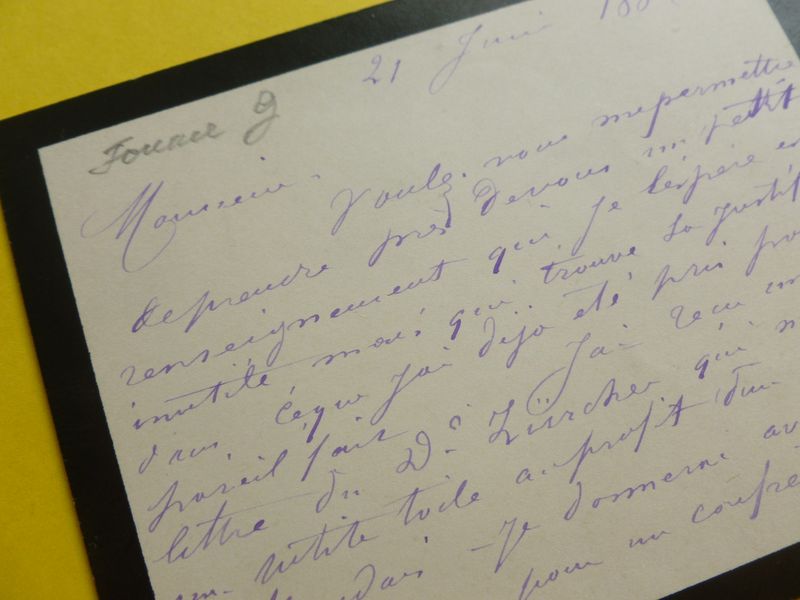 21 Juin 188
Monsieur.
Voulez vous me permettre
de prendre près de vous un petit
renseignement qui je l'espère es
inutile mais qui trouve sa justif
dans ce que j'ai déjà été pris po
pareil fait J'ai recu un
lettre du Dr Zürcher qui m
une petite toile au profit d'un
Je donnerai av
pour un confrè